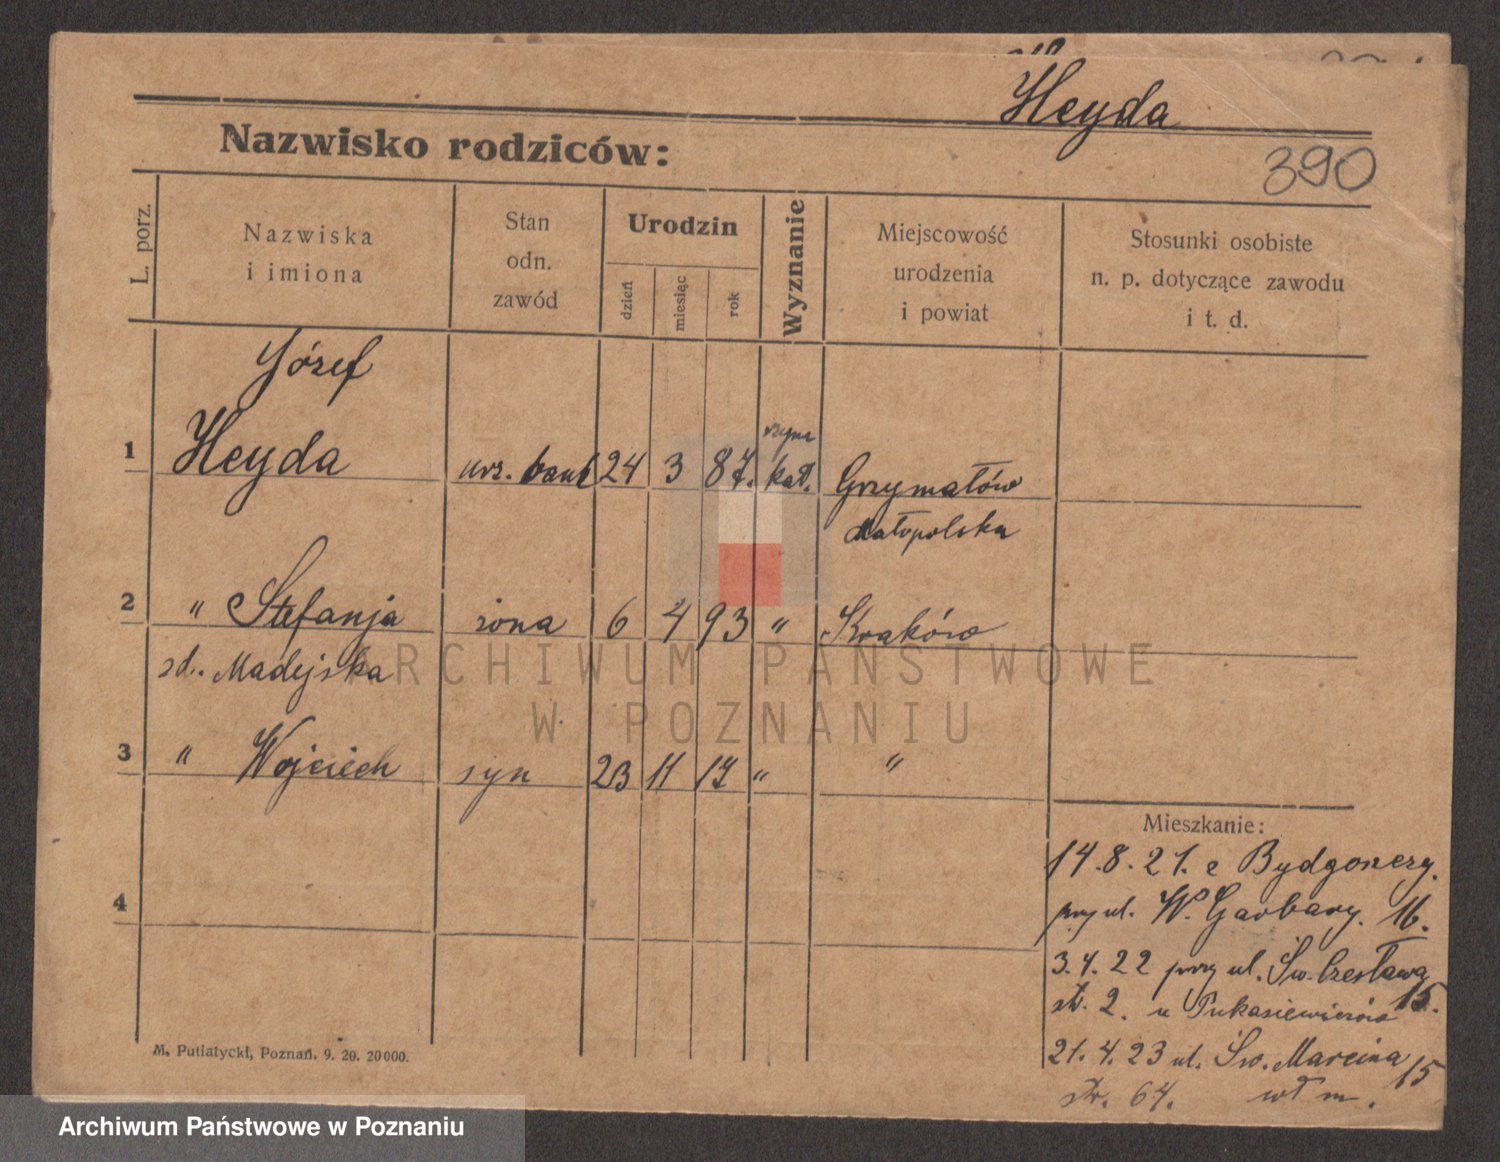 Heyda
Nazwisko rodziców:
390
L. porz.
Nazwiska
i imiona
Stan
odn.
zawód
Urodzin
dzień
miesiąc
rok
Wyznanie
Miejscowość
urodzenia
i powiat
Stosunki osobiste
n. p. dotyczące zawodu
i t. d.
Józef
1 Heyda urz. bank 24 3 87. rzym kat. Grzymałów
Małopolska
2 " Stefanja żona 6 4 93 " Kraków
zd. Madejska
3 " Wojciech syn 23 11 17 " "
4
Mieszkanie:
14.8.21. z Bydgoszczy.
przy ul. W. Garbary. 16.
3.4.22 przy ul. Św. Czesława
str. 2. u 15.
21.4.23 ul. Św. Marcina
str. 64. wł m. 15
M. Putiatycki, Poznań. 9. 20. 20000.
ARCHIWUM PAŃSTWOWE
W POZNANIU
Archiwum Państwowe w Poznaniu